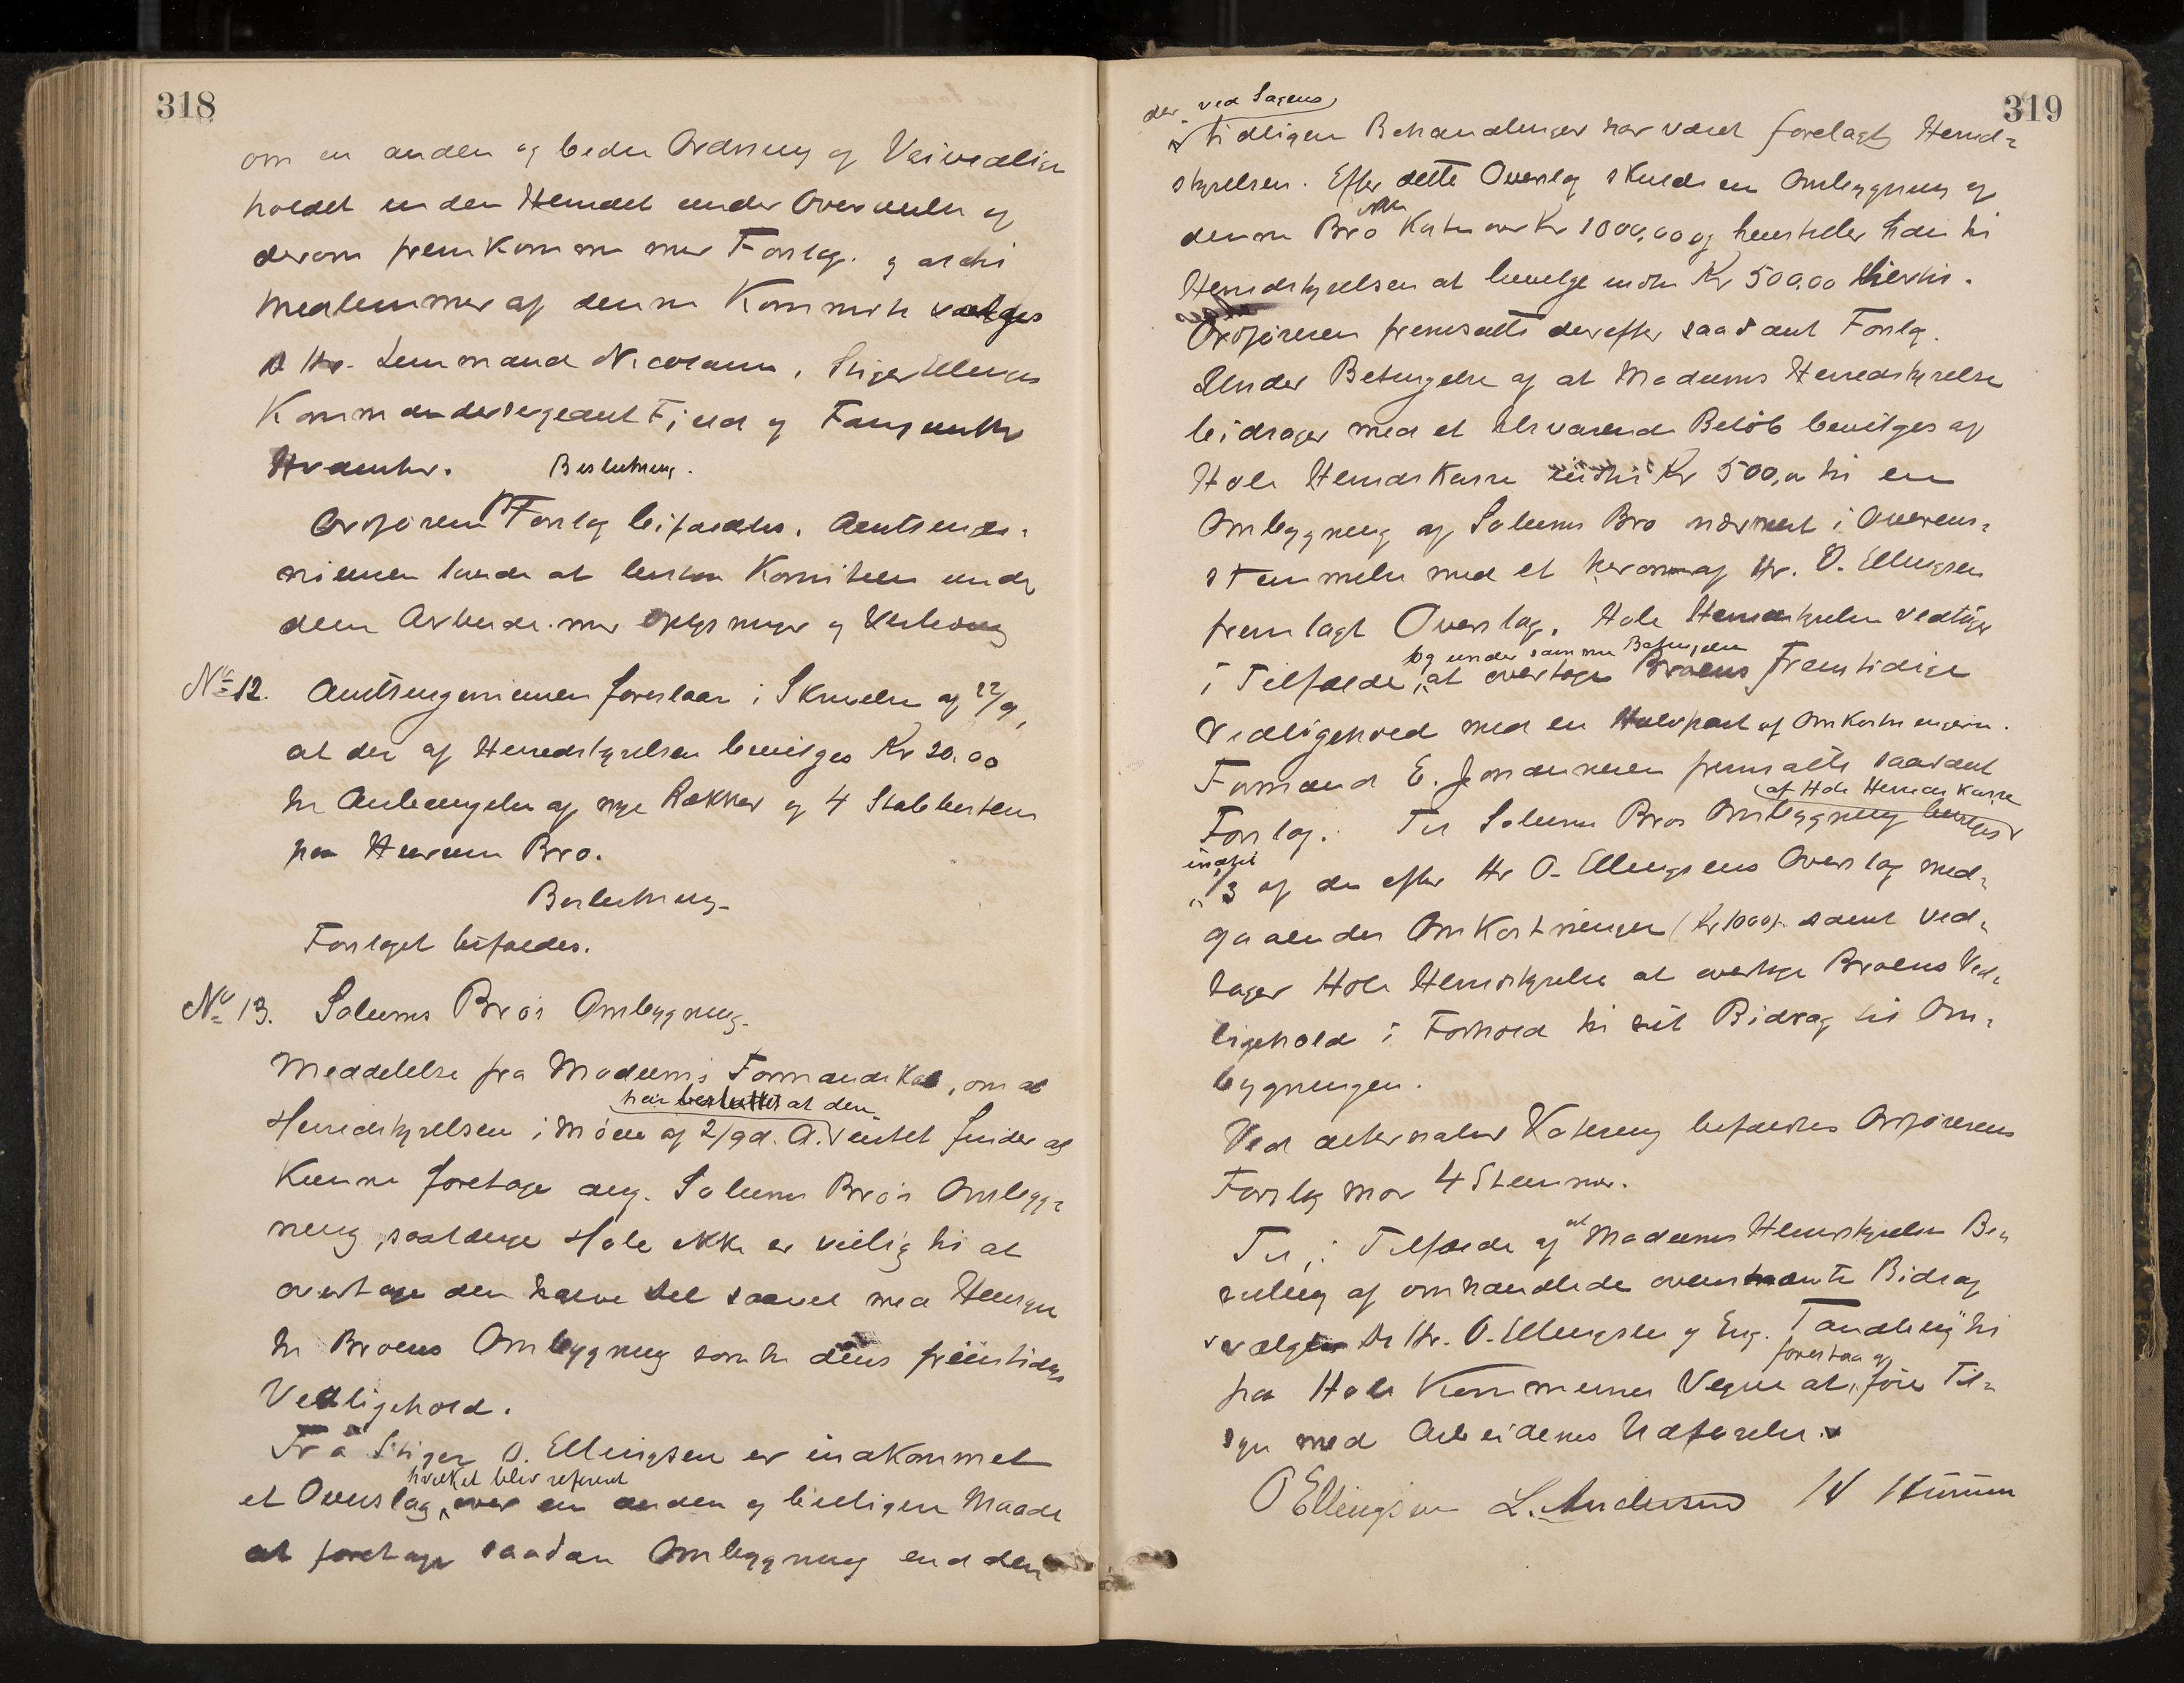 318
om en anden og bedre Ordning af Veivedlige
holdet inden Herredet under Overveielse og
derom fremkomme med Forslag. og at til
Medlemmer af denne Kommite vælges
Hr. Lensmand Nicolaisen, Stiger Ellingsen
Kommandersergeant Fjeld og
Beslutning.
Ordførerens Forslag bifaldtes. Amtsinge-
niøren lovede at bistaa Komiteen under
dens Arbeide med Oplysninger og Veiledning
No 12. Amtsingeniøren foreslaar i Skrivelse af 22/9,
at der af Herredstyrelsen bevilges Kr 20.00
til Anbringelse af nye Rækker og 4 Stabbestene
paa Bro.
Beslutning.
Forslaget bifaldes.
No 13. Solums Bros Ombygning.
Meddelelse fra Modums Formandskab, om at
har besluttet at den
Herredstyrelsen i Møde af 2/9 d. A. intet finder at
kunne foretage ang. Solums Bros Ombygg-
ning, saalænge Hole ikke er villig til at
overtage den halve Del saavel med Hensyn
til Broens Ombygning som til dens fremtidige
Vedligehold.
Fra Stiger O. Ellingsen er indkommet
hvilket blev refereret
et Overslag over en anden og billigere Maade
at foretage saadan Ombygning end den
319
der ved Sagens
tidligere Behandlinger har været forelagt Herred-
styrelsen. Efter dette Overslag skulde en Ombygning af
denne Bro koste over Kr 1000,00 og henstiller han til
Herredstyrelsen at bevilge indtil Kr 500,00 hertil.
Ordføreren fremsatte derefter saadant Forslag.
Under Betingelse af at Modums Herredstyrelse
bidrager med et tilsvarende Beløb bevilges af
Hole Herredskasse indtil Kr 500,00 til en
Ombygning af Solums Bro nærmest i Overens-
stemmelse med et herom af Hr. O. Ellingsen
fremlagt Overslag. Hole Herredstyrelse vedtager
og under samme Betingelse
i Tilfælde, at overtage Broens fremtidige
Vedligehold med en Halvpart af Omkostningerne.
Formand E. Gomdanneren fremsatte saadant
af Hole Herredskasse
Forslag. Til Solums Bros Ombygning bevilges
indtil
1/3 af de efter Hr O. Ellingsens Overslag med-
gaaende Omkostninger (Kr 1000) samt ved-
tager Hole Herredstyrelse at overtage Broens Ved-
ligehold i Forhold til sit Bidrag til Om-
bygningen.
Ved alternativ Votering bifaldtes Ordførerens
Forslag mod 4 Stemmer.
Til, i Tilfælde af at Modums Herredstyrelses Be-
villing af omhandlede ovennævnte Bidrag
vælges D Hr. O. Ellingsen og Eng. Tandberg til
forestaa og
paa Hole Kommunes Vegne at føre Til-
syn med Arbeidernes Udførelse.
O Ellingsen L. Andersen